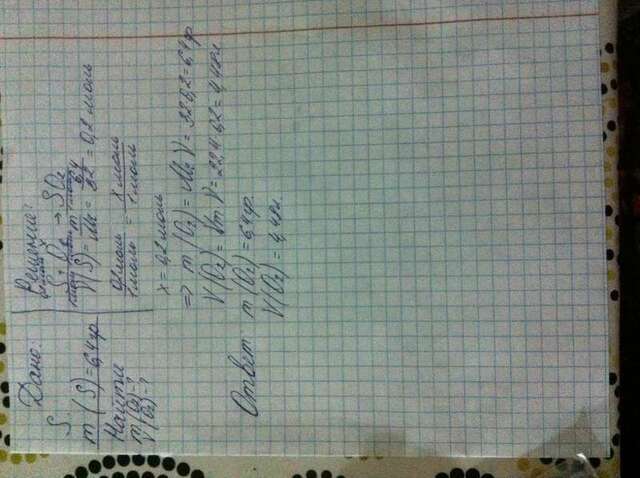 Дано:
S.
m(S)=6,4гр
Найти
m(O₂)-?
V(O₂)-?
Решение:
0,2моль x
S + O₂ → SO₂
1моль 1моль 1моль
ν(S) = m/Mr = 6,4/32 = 0,2 моль
0,2моль/1моль = x моль/1моль
x = 0,2 моль
=> m(O₂) = Mr ν = 32·0,2 = 6,4гр
V(O₂) = Vm ν = 22,4·0,2 = 4,48л
Ответ m(O₂) = 6,4гр.
V(O₂) = 4,48л.